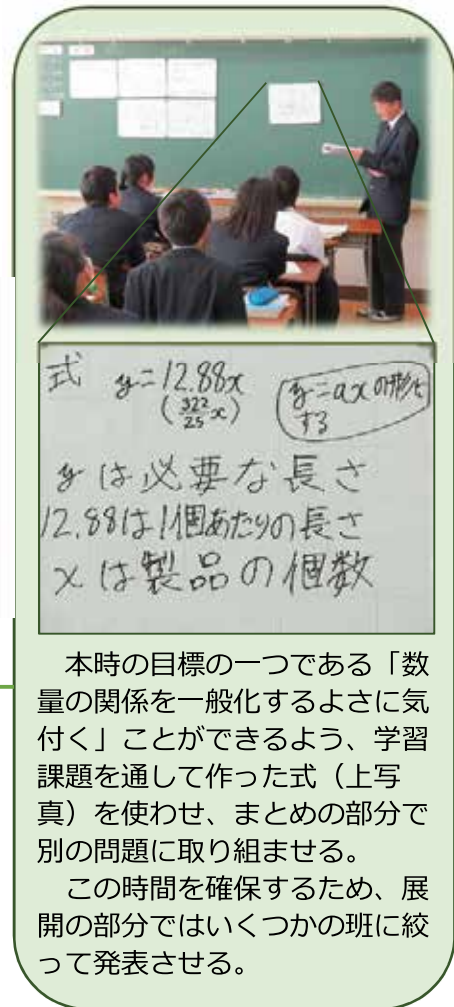 式 y=12.88x
(322/25 x)
y=axの形にする
yは必要な長さ
12.88は1個あたりの長さ
xは製品の個数
本時の目標の一つである「数
量の関係を一般化するよさに気
付く」ことができるよう、学習
課題を通して作った式（上写
真）を使わせ、まとめの部分で
別の問題に取り組ませる。
この時間を確保するため、展
開の部分ではいくつかの班に絞
って発表させる。